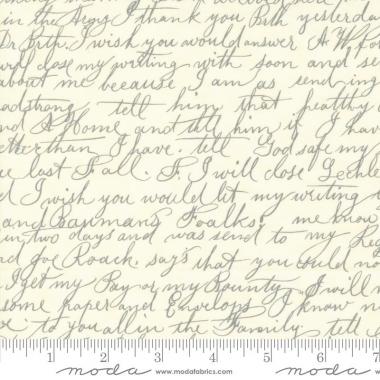 in the Argus I thank you Beth yesterda
Dr Beth. I wish you would answer A W, Fos
will close my writing with soon and se
about me because, I am as sending
adstrong tell him that healthy
A Home and tell him if I have
ether than I have. tell God safe my
last Fall. F. I will close
d I wish you would let my writing
and Banmans Foalks, me know
in two days and was send to my Reg
nd Joe Roach. says that you could no
I get my Pay or my Bounty I will
some paper and Envelops I know n
to you all in the Family tell
1 2 3 4 5 6 7
moda www.modafabrics.com moda www.modafabrics.com moda